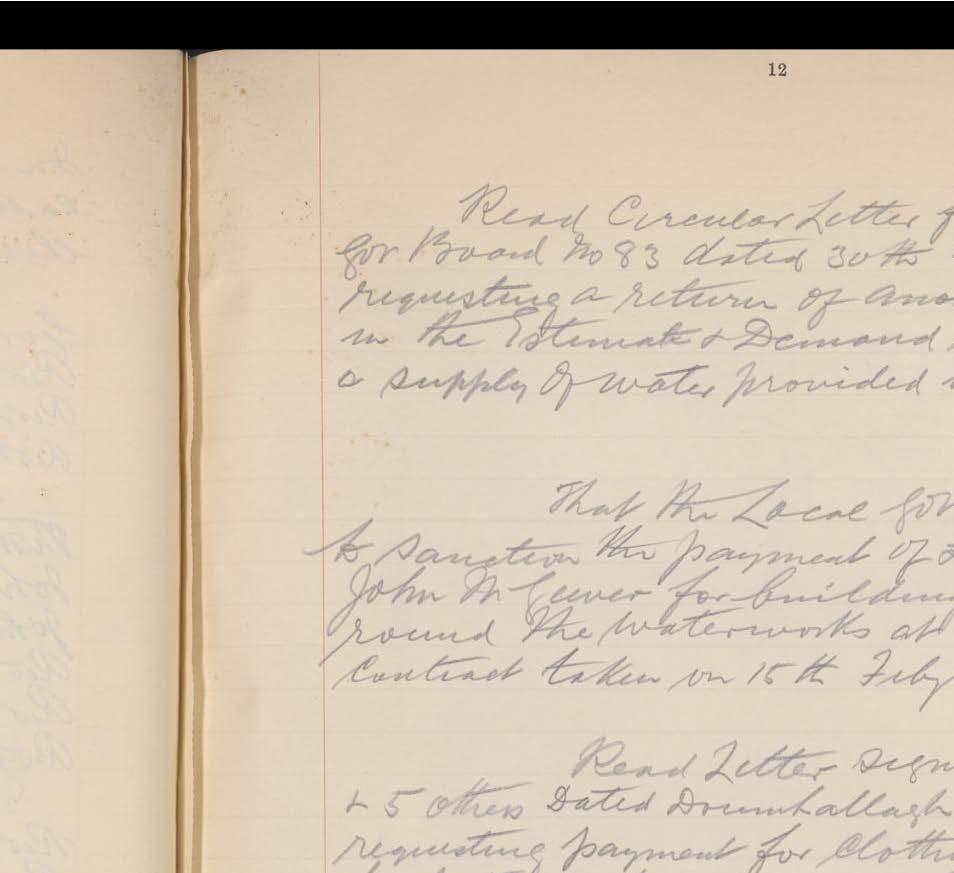 12
Read Circular Letter f
Gov Board No 83 dated 30th
requesting a return of amo
in the Estimate & Demand
a supply of water provided
That the Local Gov
to sanction the payment of £
John McGever for building
round the waterworks at
Contract taken on 15th Feby
Read Letter sign
& 5 others Dated Drumhallagh
requesting payment for Clothi